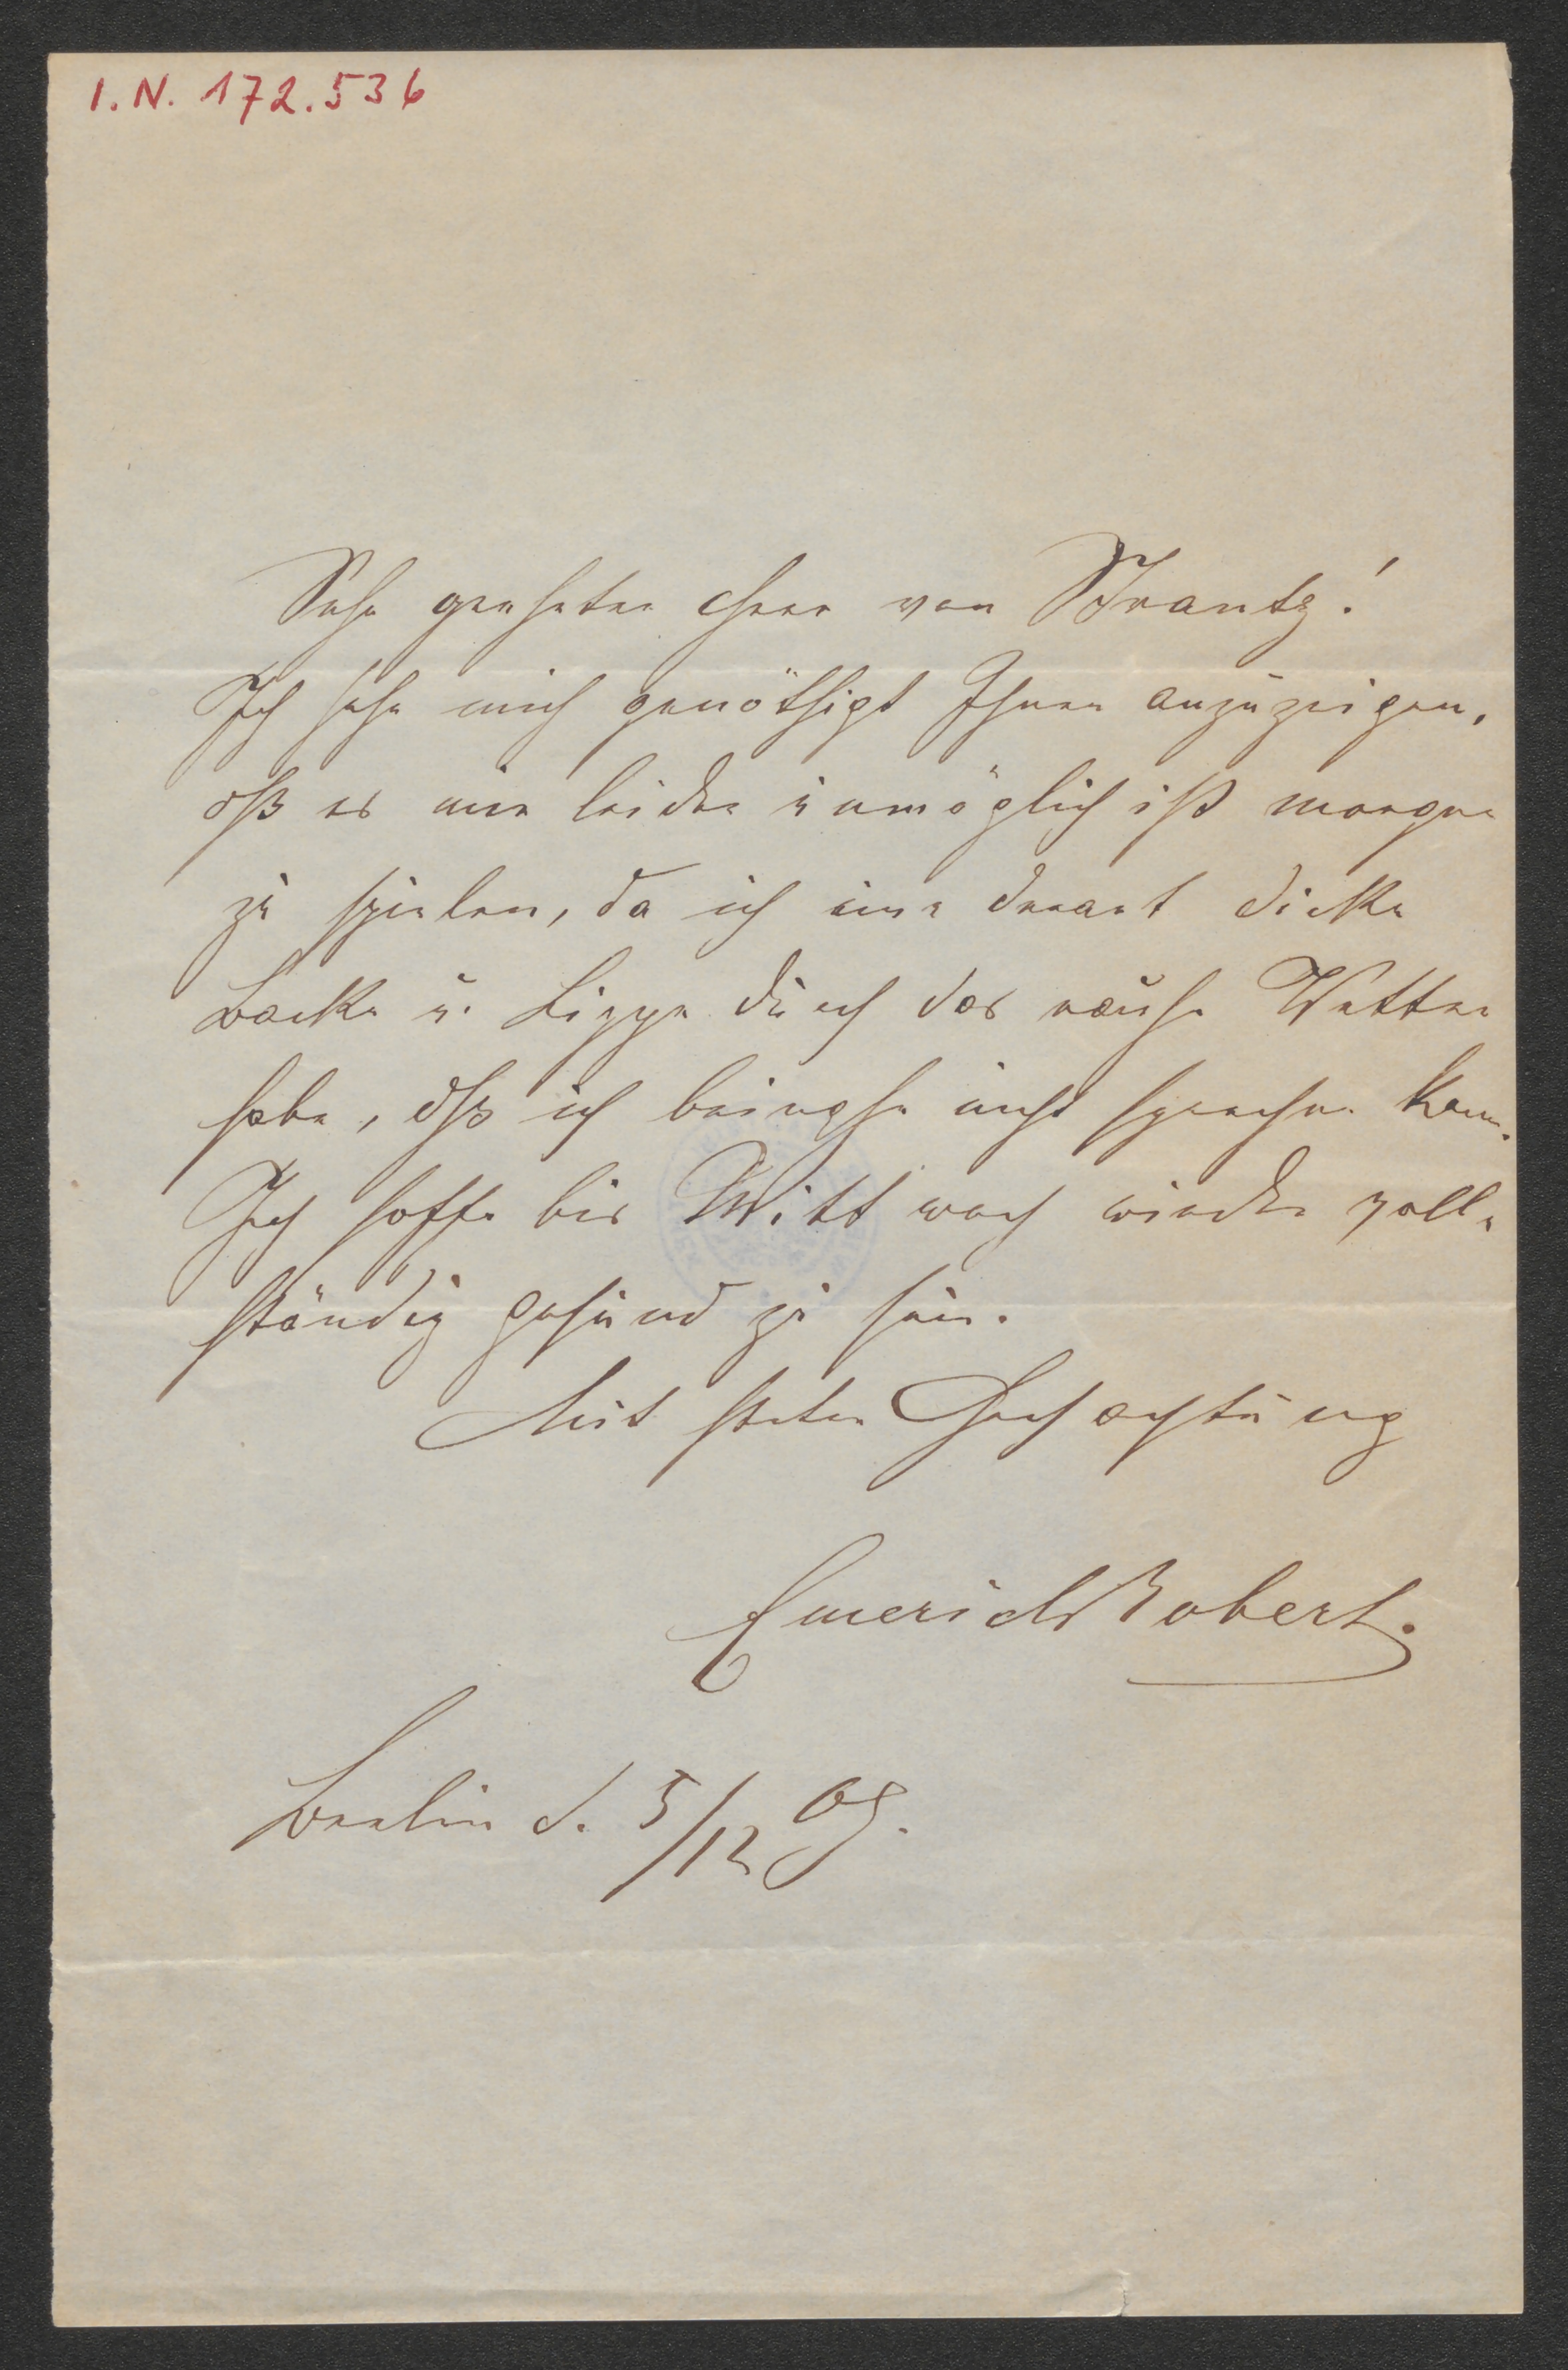 I.N. 172.536
Sehr geehrter Herr von Strantz!
Ich sehe mich genöthigt Ihnen anzuzeigen,
dß es mir leider unmöglich ist morgen
zu spielen, da ich eine derart dicke
Backe u. Lippe durch das rauhe Wetter
habe, dß ich beinahe nicht sprechen kann.
Ich hoffe bis Mittwoch wieder voll-
ständig gesund zu sein.
Mit steter Hochachtung
Emerich Robert.
Berlin d. 5/12